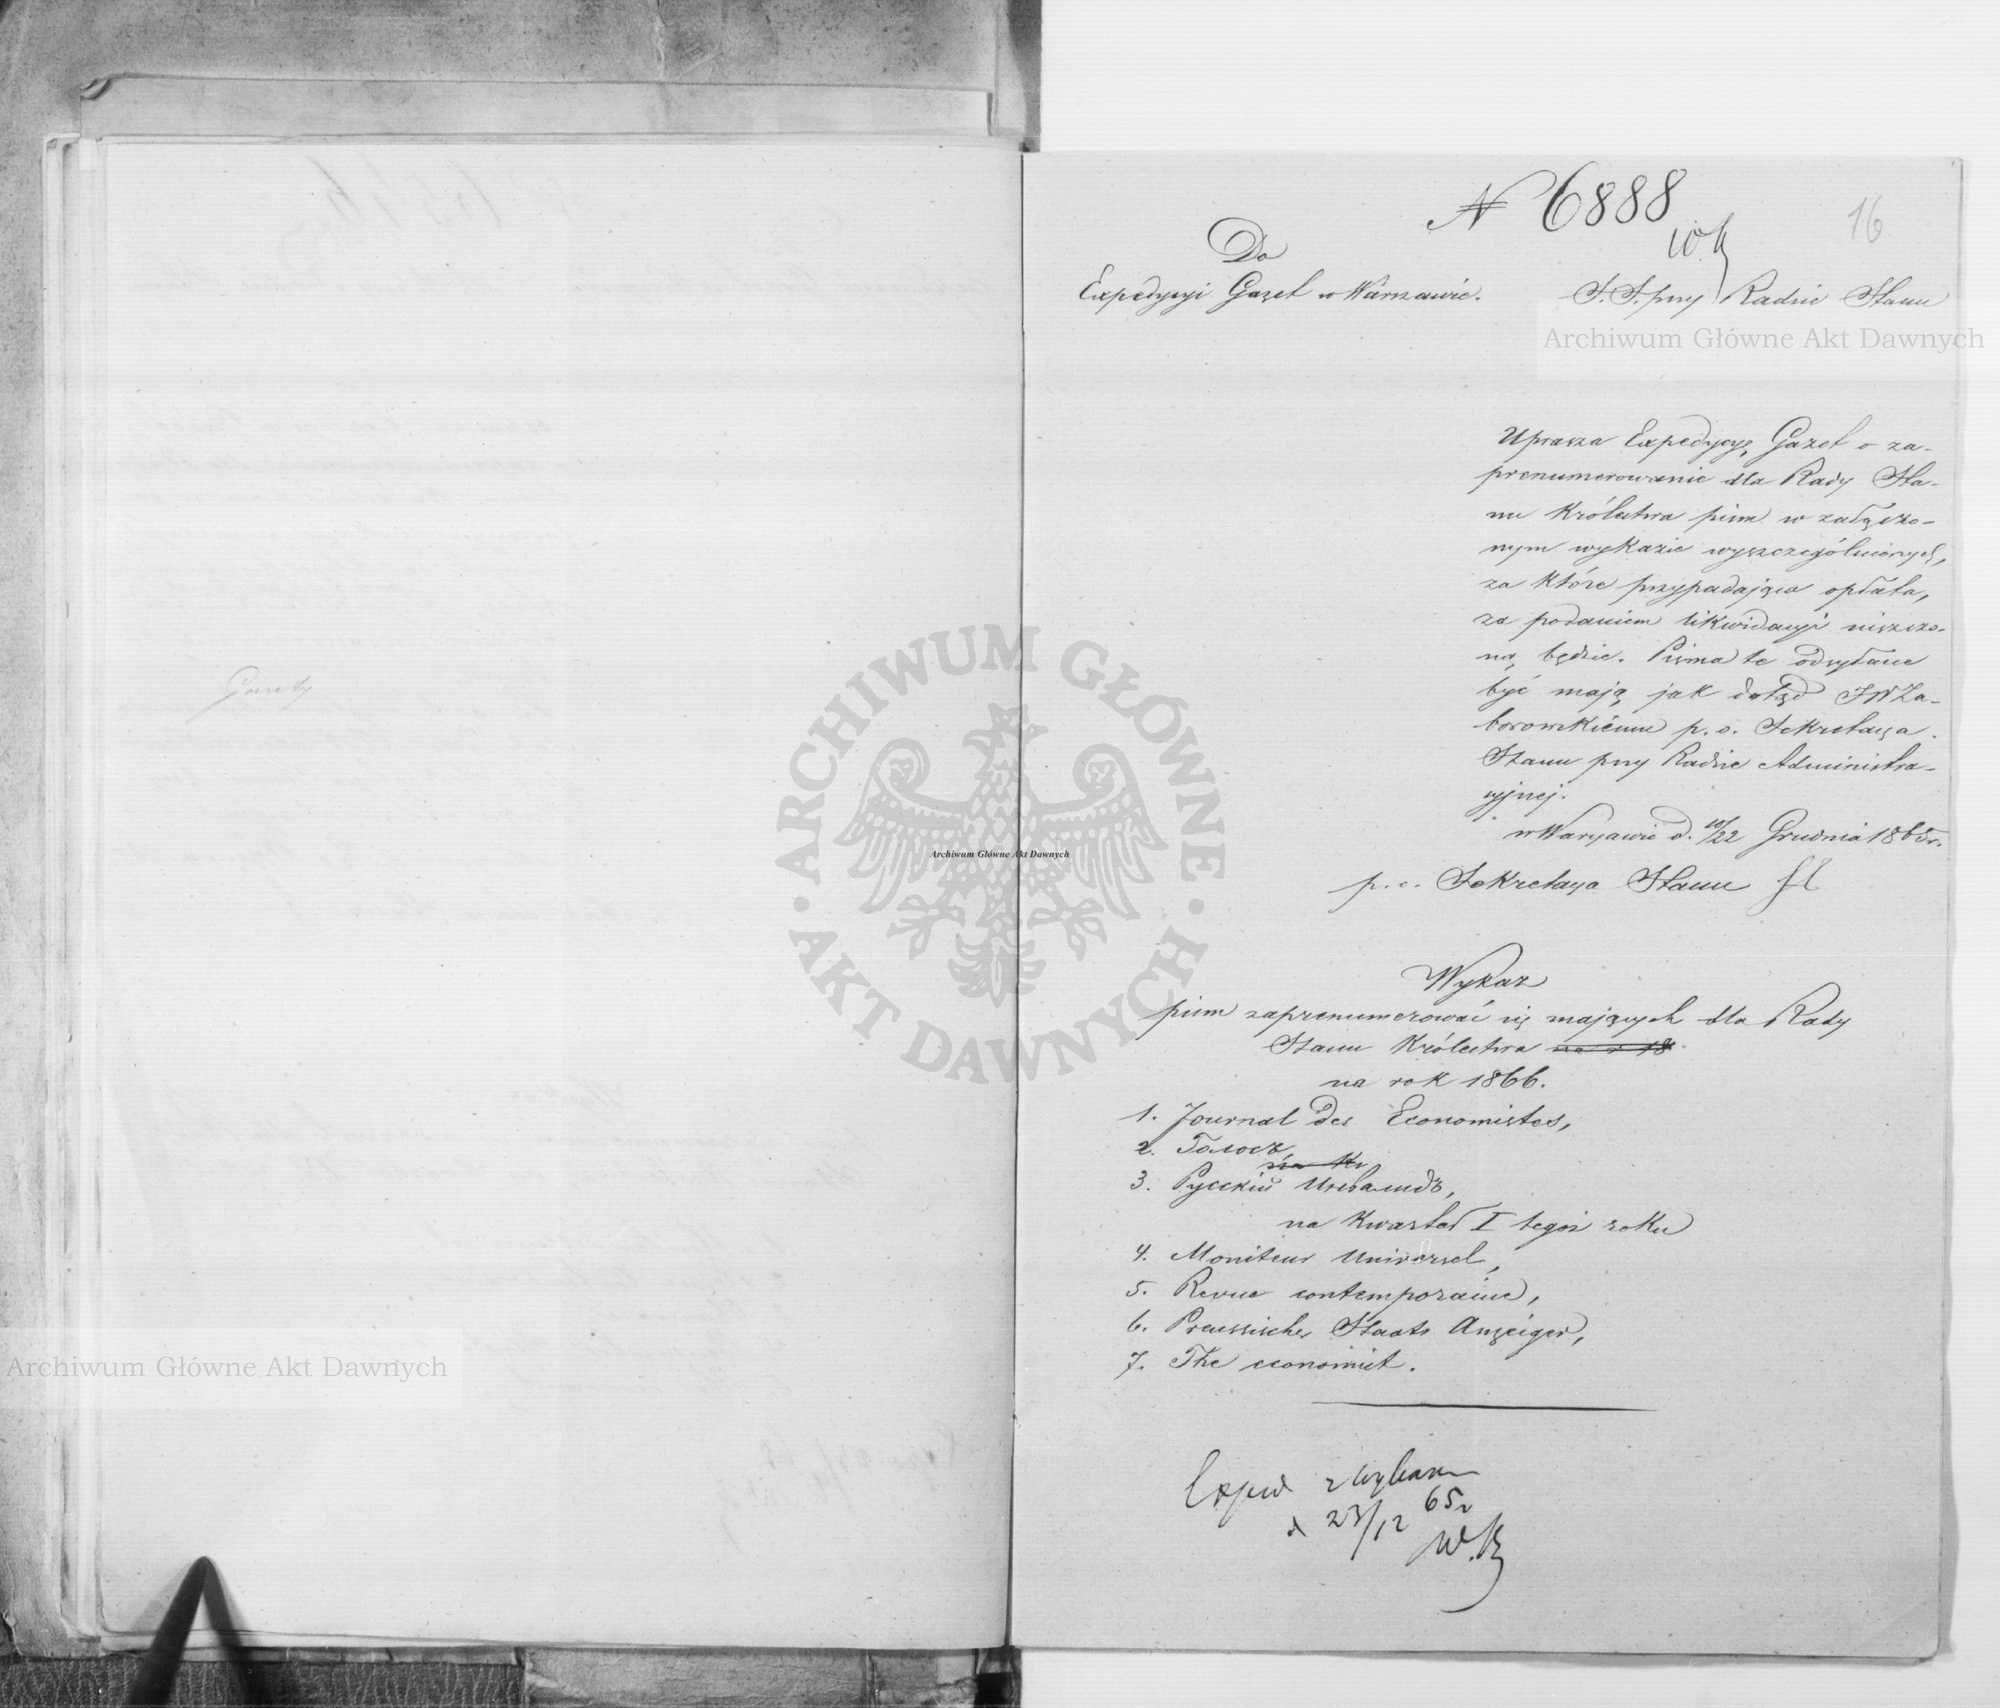 Gazety
N 6888
W.K
16
Do
Expedycyi Gazet w Warszawie.
S.S. przy Radzie Stanu
Uprasza Expedycyę Gazet o za-
prenumerowanie dla Rady Sta-
nu Królestwa pism w załączo-
nym wykazie wyszczególnionych,
za które przypadająca opłata,
za podaniem likwidacyi uiszczo-
ną będzie. Pisma te odsyłane
być mają jak dotąd JW Za-
borowskiemu p. o. Sekretarza
Stanu przy Radzie Administra-
cyjnej.
w Warszawie d. 10/22 Grudnia 1865 r.
p. o. Sekretarza Stanu
Wykaz
pism zaprenumerować się mających dla Rady
Stanu Królestwa na r 18
na rok 1866.
1. Journal des Economistes,
2. Голосъ,
3. Русскій Инвалидъ,
na Kwartał I tegoż roku
4. Moniteur Universel,
5. Revue contemporaine,
6. Preussischer Staats Anzeiger,
7. The economist.
Exped z wykazem
d 23/12 65 r
W.K
Archiwum Główne Akt Dawnych
ARCHIWUM GŁÓWNE
· AKT DAWNYCH ·
Archiwum Główne Akt Dawnych
Archiwum Główne Akt Dawnych